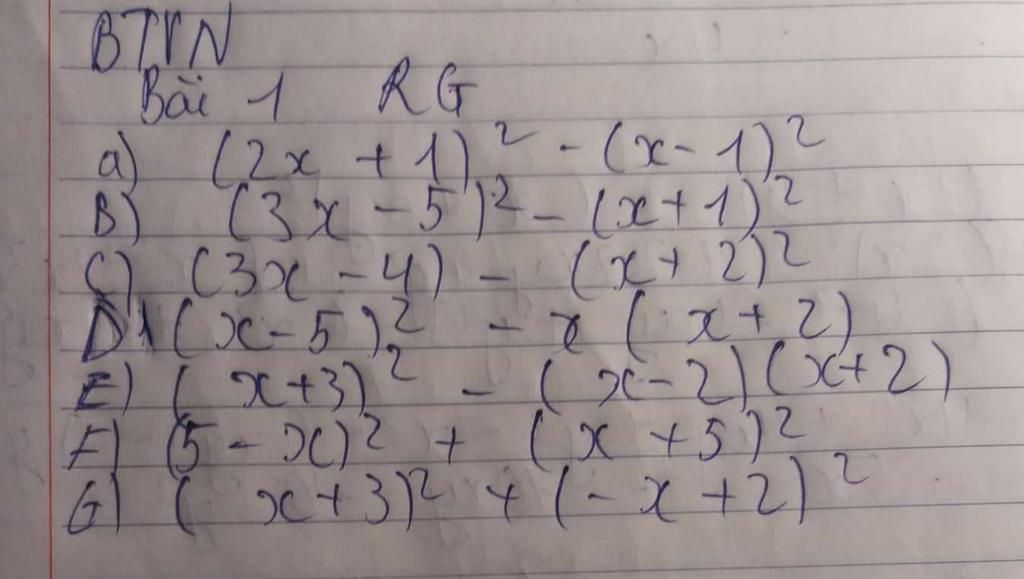 BTVN
Bài 1 RG
a) (2x + 1)² - (x - 1)²
B) (3x - 5)² - (x + 1)²
C) (3x - 4) - (x + 2)²
D) (x - 5)² - x (x + 2)
E) (x + 3)² - (x - 2)(x + 2)
F) (5 - x)² + (x + 5)²
G) (x + 3)² + (-x + 2)²